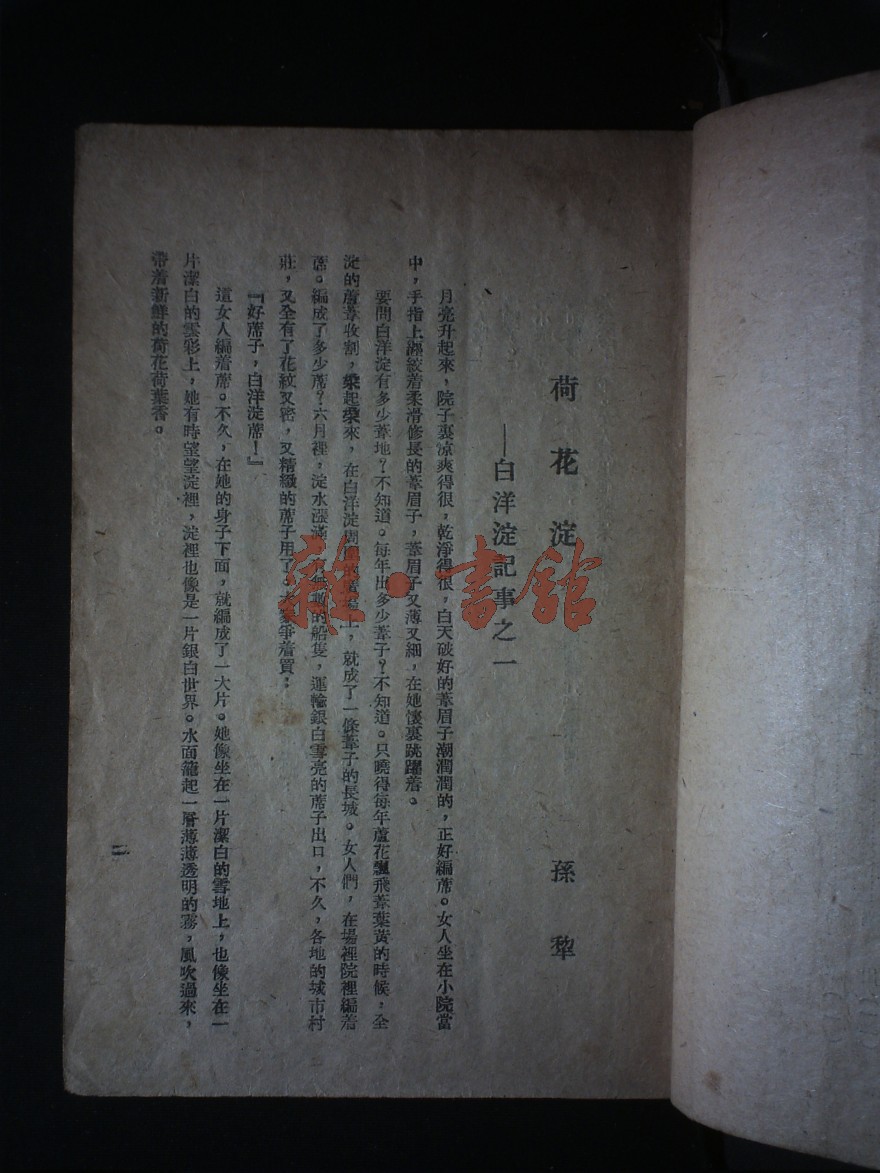 荷花淀
——白洋淀記事之一
孫犂
月亮升起來，院子裏凉爽得很，乾淨得很，白天破好的葦眉子潮潤潤的，正好編蓆。女人坐在小院當
中，手指上纏絞着柔滑修長的葦眉子，葦眉子又薄又細，在她懷裏跳躍着。
要問白洋淀有多少葦地？不知道。每年出多少葦子？不知道。只曉得每年蘆花飄飛葦葉黃的時候，全
淀的蘆葦收割，垜起垜來，在白洋淀周圍的廣塲上，就成了一條葦子的長城。女人們，在塲裡院裡編着
蓆。編成了多少蓆？六月裡，淀水漲滿，有無數的船隻，運輸銀白雪亮的蓆子出口，不久，各地的城市村
莊，又全有了花紋又密，又精緻的蓆子用了。大家爭着買：
『好蓆子，白洋淀蓆！』
這女人編着蓆。不久，在她的身子下面，就編成了一大片。她像坐在一片潔白的雪地上，也像坐在一
片潔白的雲彩上，她有時望望淀裡，淀裡也像是一片銀白世界。水面籠起一層薄薄透明的霧，風吹過來，
帶着新鮮的荷花荷葉香。
二
雜·書館